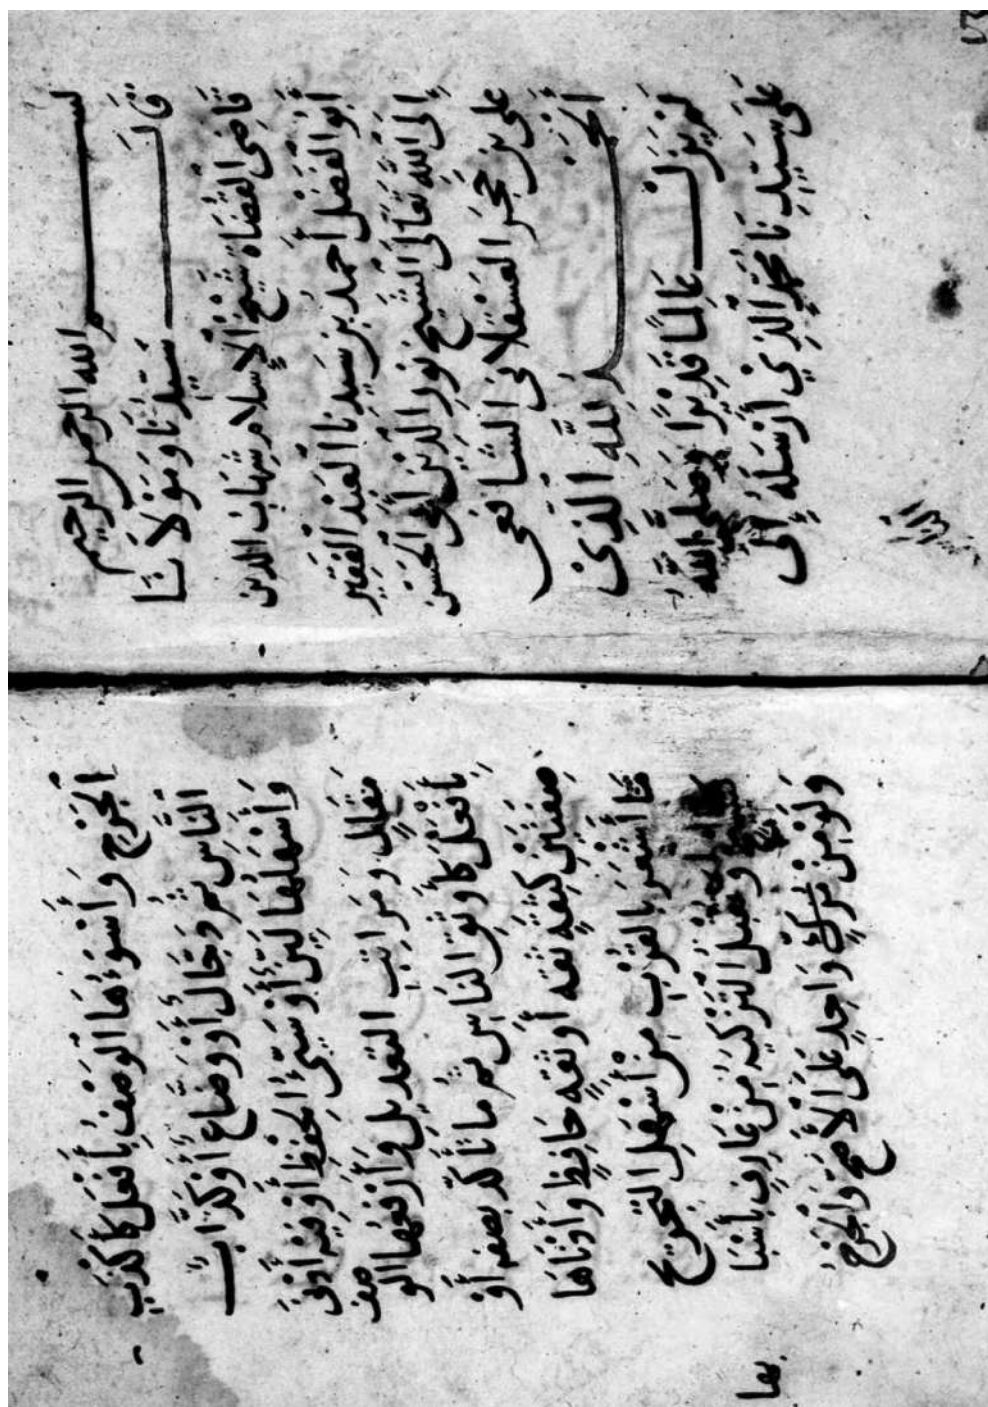 بسم الله الرحمن الرحيم
قَالَ سَيِّدُنَا وَمَوْلَانَا
قَاضِى الْقُضَاةِ شَيْخُ الْإِسْلَامِ شِهَابُ الدين
أَبُو الْفَضْلِ أَحْمَدُ بْنُ سَيِّدِنَا الْعَبْدِ الْفَقِيْرِ
إِلَى اللهِ تَعَالَى الشَّيْخِ نُوْرِ الدِّيْنِ أَبِى الْحَسَنِ
عَلِى بْنِ حَجَرٍ الْعَسْقَلَانِى الشافعى
اَلْحَمْدُ لِلّٰهِ الَّذِىْ
لَمْ يَزَلْ عَالِمًا قَدِيْرًا وَصَلَّى اللهُ
عَلَى سَيِّدِنَا مُحَمَّدٍ الَّذِيْ أَرْسَلَهُ إِلَى
الْجَرْحِ وَأَسْوَؤُهَا الْوَصْفُ بِأَفْعَلَ كَأَكْذَبِ
النَّاسِ ثُمَّ دَجَّالٌ أَوْ وَضَّاعٌ أَوْ كَذَّابٌ
وَأَسْهَلُهَا لَيِّنٌ أَوْ سَيِّئُ الْحِفْظِ أَوْ فِيْهِ أَدْنَى
مَقَالٍ وَمَرَاتِبِ التعديل وَأَرْفَعُهَا الوصف
بِأَفْعَلَ كَأَوْثَقِ النَّاسِ ثُمَّ مَا تَأَكَّدَ بصفه أَوْ
صِفَتَيْنِ كثقه ثقه أو ثقه حَافِظٍ وَأَدْنَاهَا
مَا أَشْعَرَ بِالْقُرْبِ مِنْ أَسْهَلِ التَّجْرِيْحِ
وتقبل التَّزْكِيَه مِنْ عَارِفٍ بِأَسْبَا بها
وَلَوْ مِنْ مُزَكٍّ وَاحِدٍ عَلَى الْأَصَحِّ وَالْجَرْحُ